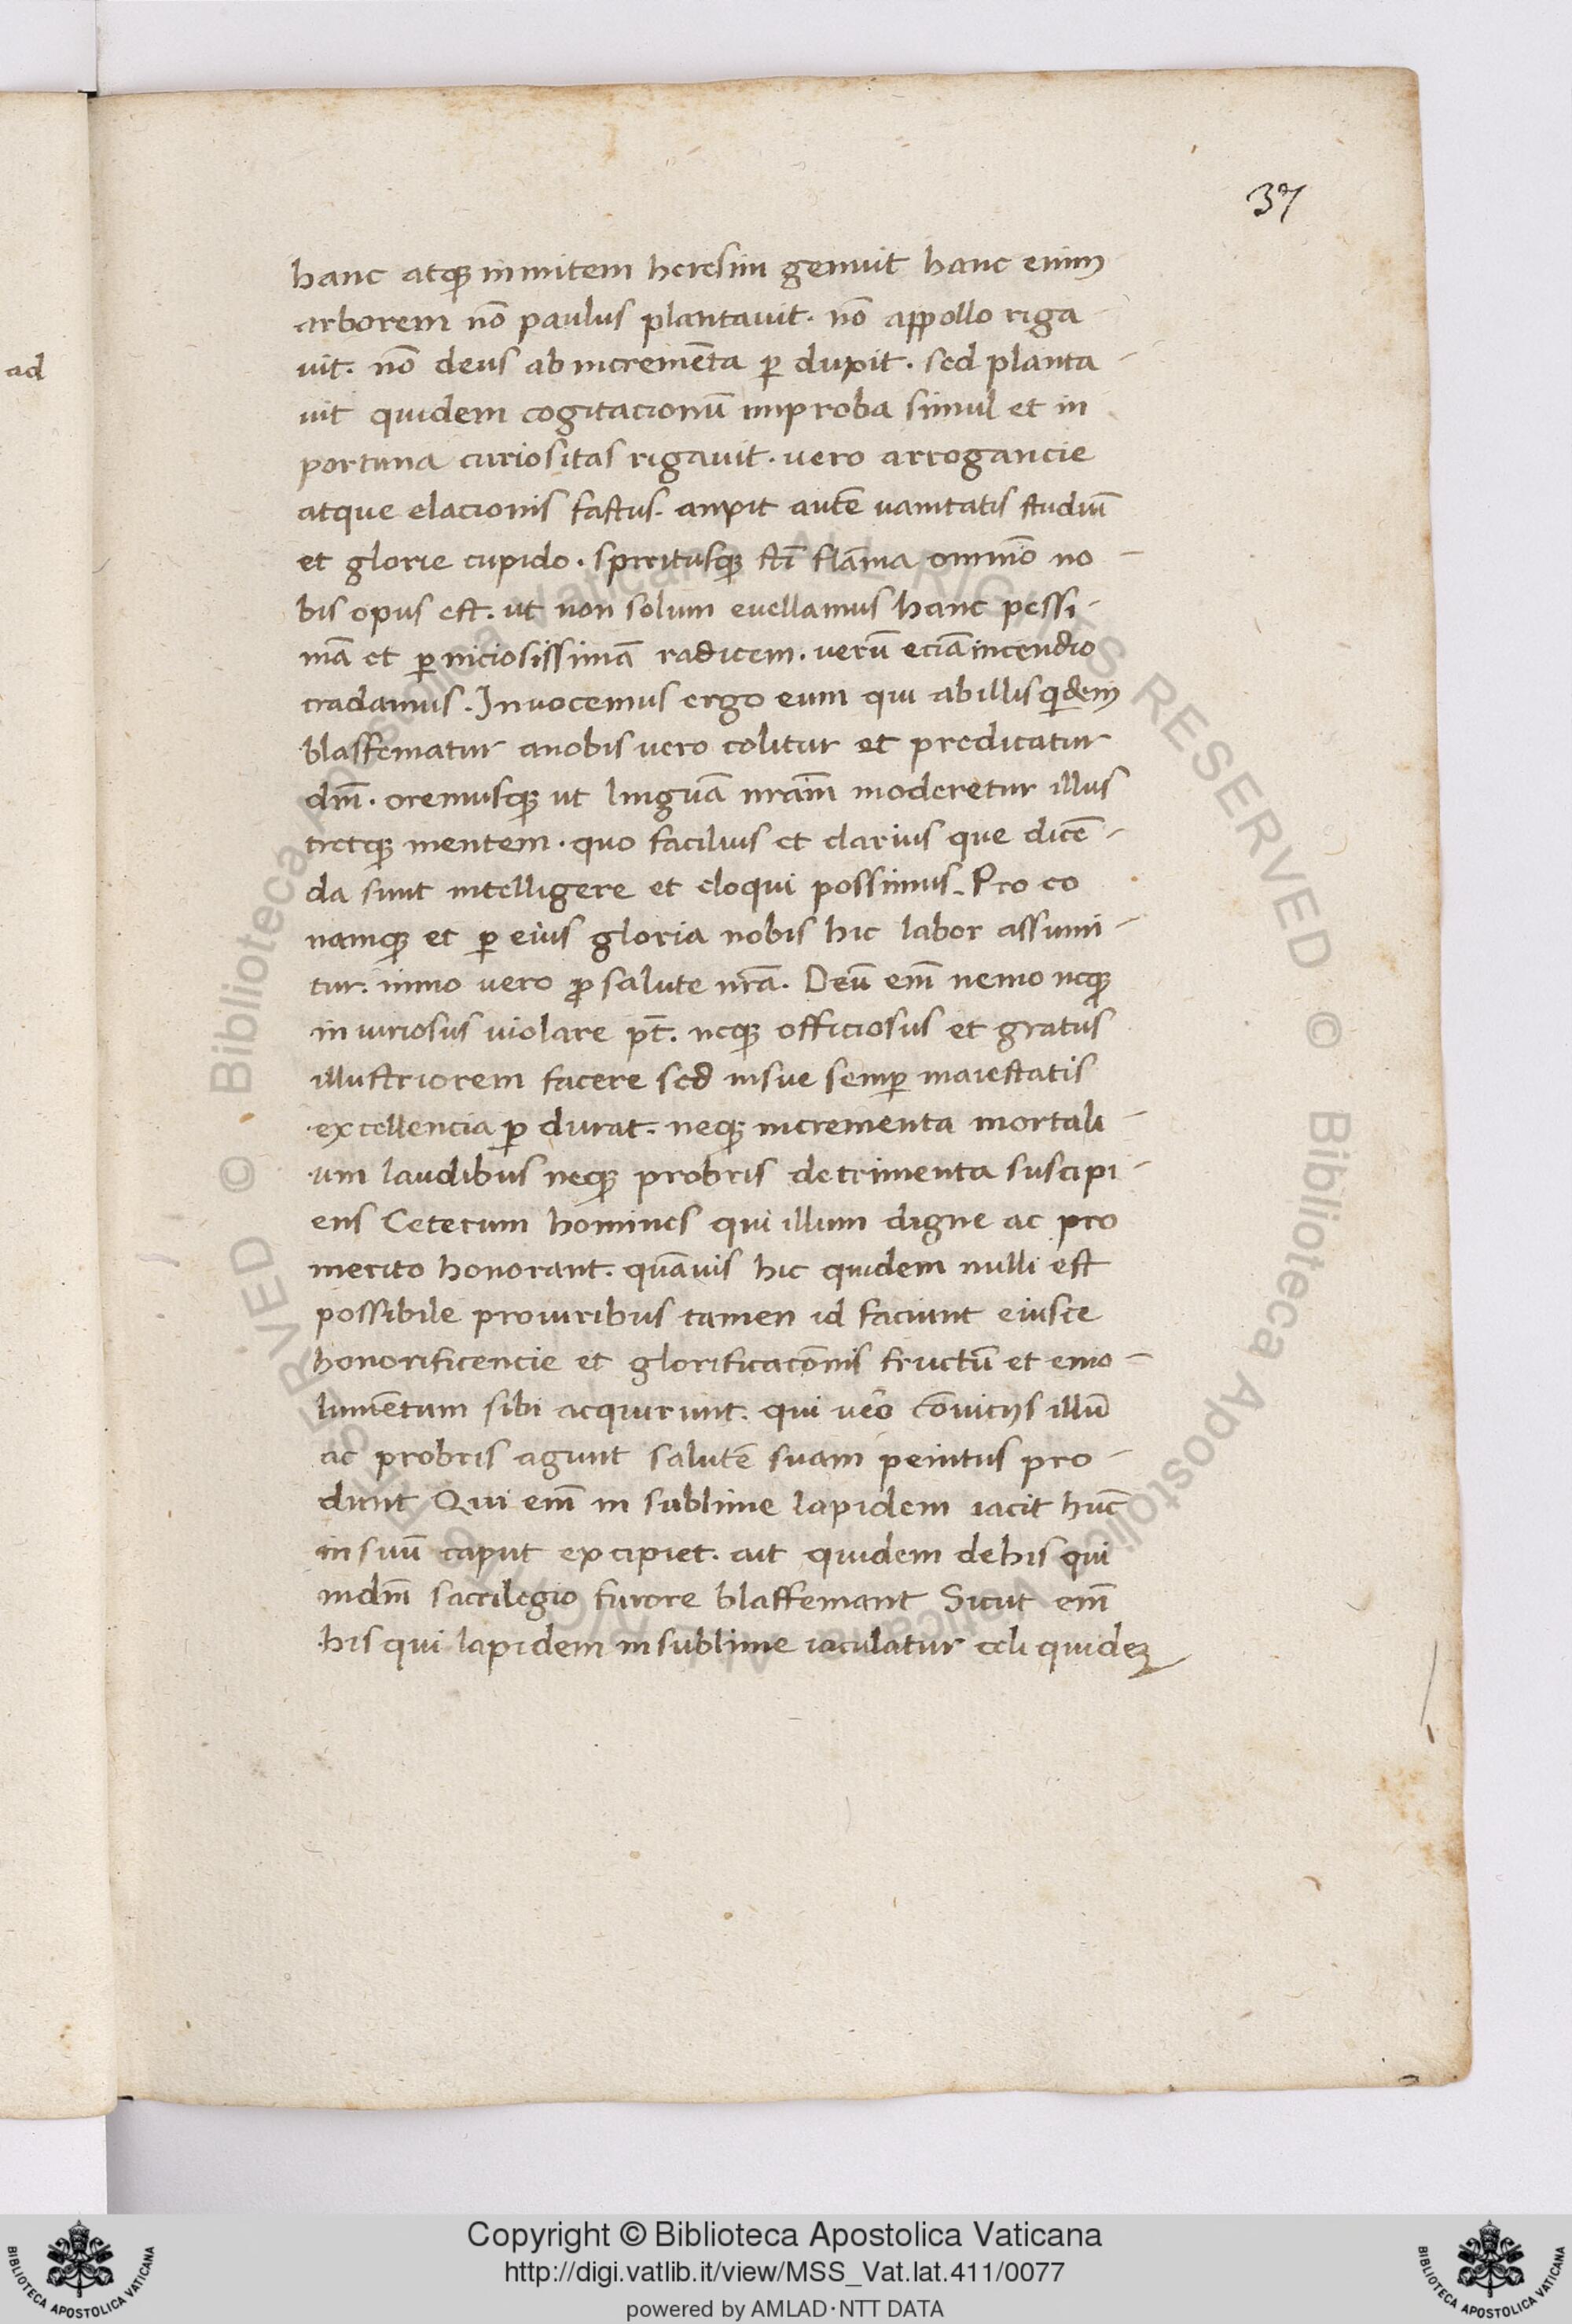 37
hanc atq3 inmitem heresim genuit hanc enim
arborem nõ paulus plantauit. nõ appollo riga
uit. nõ deus ab incremẽta ꝑ duxit. sed planta-
uit quidem cogitacionũ improba simul et in
portuna curiositas rigauit. vero arrogancie
atque elacionis fastus. auxit autẽ vanitatis studiũ
et glorie cupido. spiritusq3 sc̃i flãma omnino no-
bis opus est. ut non solum euellamus hanc pessi-
mã et ꝑniciosissimã radicem. verũ eciã incendio
tradamus. Inuocemus ergo eum qui ab illis q̃dem
blasfematur a nobis uero colitur et predicatur
dm̃. oremusq3 ut linguã nr̃am moderetur illus
tretq3 mentem. quo facilius et clarius que dicẽ-
da sunt intelligere et eloqui possimus. Pro eo
namq3 et ꝑ eius gloria nobis hic labor assumi-
tur. inmo vero ꝓ salute nr̃a. Deũ em̃ nemo neq3
iniuriosus violare pt̃. neq3 officiosus et gratus
illustriorem facere sed in sue semꝑ maiestatis
excellencia ꝑ durat. neq3 incrementa mortali-
um laudibus neq3 probris detrimenta suscipi-
ens Ceterum homines qui illum digne ac pro
merito honorant. quãuis hic quidem nulli est
possibile pro uiribus tamen id faciunt eiusce
honorificencie et glorificacõnis fructũ et emo-
lumẽtum sibi acquirunt. qui vẽo cõuicijs illũ
ac probris agunt salutẽ suam penitus pro-
dunt Qui em̃ in sublime lapidem iacit hũc
in suũ caput excipiet. ait quidem de his qui
in dm̃ sacrilegio furore blasfemant Sicut em̃
his qui lapidem in sublime iaculatur celi quidem
ad
Copyright © Biblioteca Apostolica Vaticana
http://digi.vatlib.it/view/MSS_Vat.lat.411/0077
powered by AMLAD·NTT DATA
BIBLIOTECA APOSTOLICA VATICANA
BIBLIOTECA APOSTOLICA VATICANA